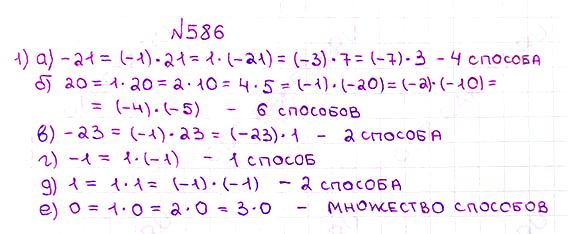 №586
1) а) -21 = (-1)·21 = 1·(-21) = (-3)·7 = (-7)·3 - 4 способа
б) 20 = 1·20 = 2·10 = 4·5 = (-1)·(-20) = (-2)·(-10) =
= (-4)·(-5) - 6 способов
в) -23 = (-1)·23 = (-23)·1 - 2 способа
г) -1 = 1·(-1) - 1 способ
д) 1 = 1·1 = (-1)·(-1) - 2 способа
е) 0 = 1·0 = 2·0 = 3·0 - множество способов